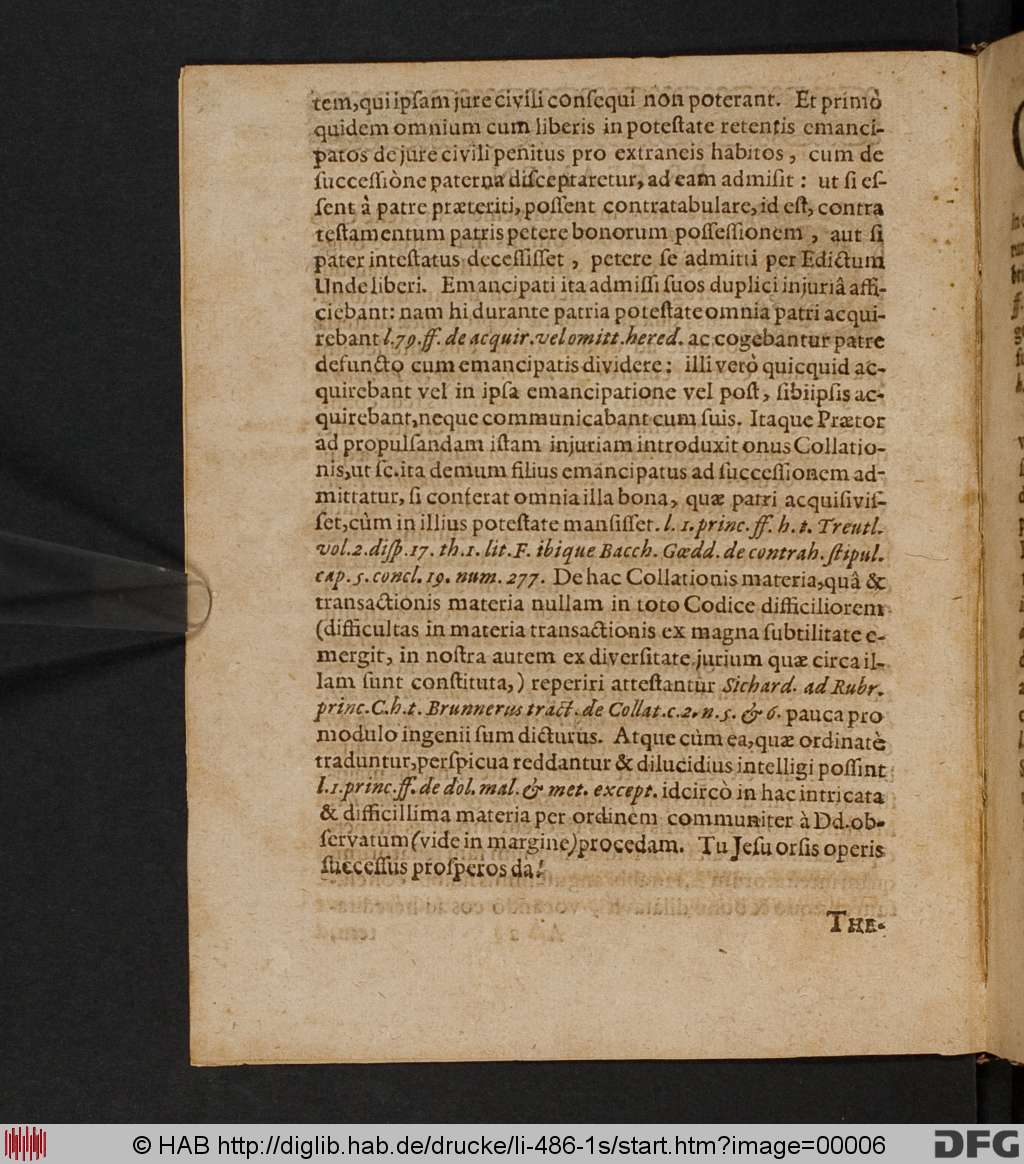 tem, qui ipsam jure civili consequi non poterant. Et primò
quidem omnium cum liberis in potestate retentis emanci-
patos de jure civili penitus pro extraneis habitos, cum de
successiòne paterna disceptaretur, ad eam admisit: ut si es-
sent à patre præteriti, possent contratabulare, id est, contra
testamentum patris petere bonorum possessionem, aut si
pater intestatus decessisset, petere se admitti per Edictum
Unde liberi. Emancipati ita admissi suos duplici injuriâ affi-
ciebant: nam hi durante patria potestate omnia patri acqui-
rebant l. 79. ff. de acquir. vel omitt. hered. ac cogebantur patre
defuncto cum emancipatis dividere: illi verò quicquid ac-
quirebant vel in ipsa emancipatione vel post, sibi ipsis ac-
quirebant, neque communicabant cum suis. Itaque Prætor
ad propulsandam istam injuriam introduxit onus Collatio-
nis, ut sc. ita demum filius emancipatus ad successionem ad-
mittatur, si conferat omnia illa bona, quæ patri acquisivis-
set, cùm in illius potestate mansisset. l. 1. princ. ff. h. t. Treutl.
vol. 2. disp. 17. th. 1. lit. F. ibique Bacch. Gœdd. de contrah. stipul.
cap. 5. concl. 19. num. 277. De hac Collationis materia, quâ &
transactionis materia nullam in toto Codice difficiliorem
(difficultas in materia transactionis ex magna subtilitate e-
mergit, in nostra autem ex diversitate jurium quæ circa il-
lam sunt constituta,) reperiri attestantur Sichard. ad Rubr.
princ. C. h. t. Brunnerus tract. de Collat. c. 2. n. 5. & 6. pauca pro
modulo ingenii sum dicturus. Atque cùm ea, quæ ordinatè
traduntur, perspicua reddantur & dilucidius intelligi possint
l. 1. princ. ff. de dol. mal. & met. except. idcircò in hac intricata
& difficillima materia per ordinem communiter à Dd. ob-
servatum (vide in margine) procedam. Tu Jesu orsis operis
successus prosperos da!
THE-
© HAB http://diglib.hab.de/drucke/li-486-1s/start.htm?image=00006
DFG